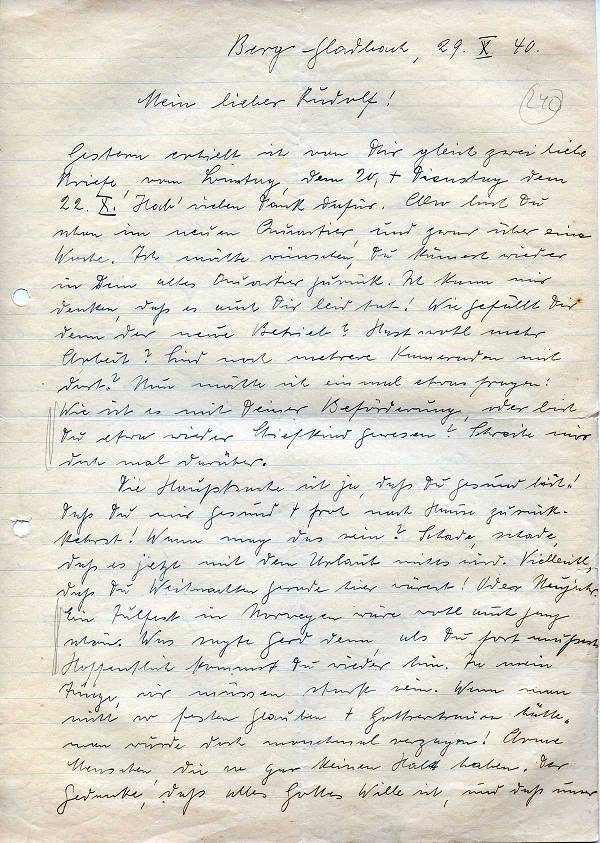 Berg. Gladbach, 29. X. 40.
240
Mein lieber Rudolf!
Gestern erhielt ich von Dir gleich zwei liebe
Briefe, vom Sonntag, dem 20, + Dienstag dem
22. X.! Hab' vielen Dank dafür. Also bist Du
schon im neuen Quartier, und zwar über eine
Woche. Ich möchte wünschen, Du kämest wieder
in Dein altes Quartier zurück. Ich kann mir
denken, daß es auch Dir leid tut! Wie gefällt Dir
denn der neue Betrieb? Hast wohl mehr
Arbeit? Sind noch mehrere Kameraden mit
dort? Nun möchte ich einmal etwas fragen!
Wie ist es mit Deiner Beförderung, oder bist
Du etwa wieder Stiefkind gewesen? Schreibe mir
doch mal darüber.
Die Hauptsache ist ja, daß Du gesund bist!
Daß Du mir gesund + froh nach Hause zurück-
kehrst! Wann mag das sein? Schade, schade,
daß es jetzt mit dem Urlaub nichts wird. Vielleicht,
daß Du Weihnachten gerade hier wärest! Oder Neujahr.
Ein Julfest in Norwegen wäre wohl auch ganz
schön. Was sagte Gerd denn, als Du fort mußtest
Hoffentlich kommst Du wieder hin. Ja mein
Junge, wir müssen stark sein. Wenn man
nicht so festen Glauben + Gottvertrauen hätte,
man würde doch manchmal verzagen! Arme
Menschen, die so gar keinen Halt haben. Der
Gedanke, daß alles Gottes Wille ist, und daß unser